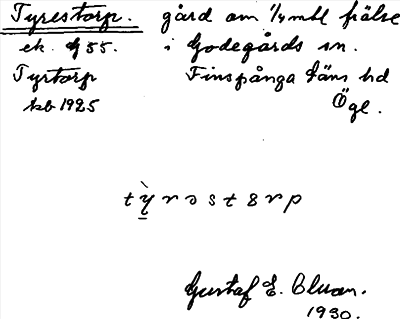 Tyrestorp. gård om 1/4 mtl frälse
ek. G 55. i Godegårds sn.
Tyrtorp Finspånga Läns hd
kb 1925 Ögl.
tỳ̲rəstɜrp
Gustaf E.
1930.